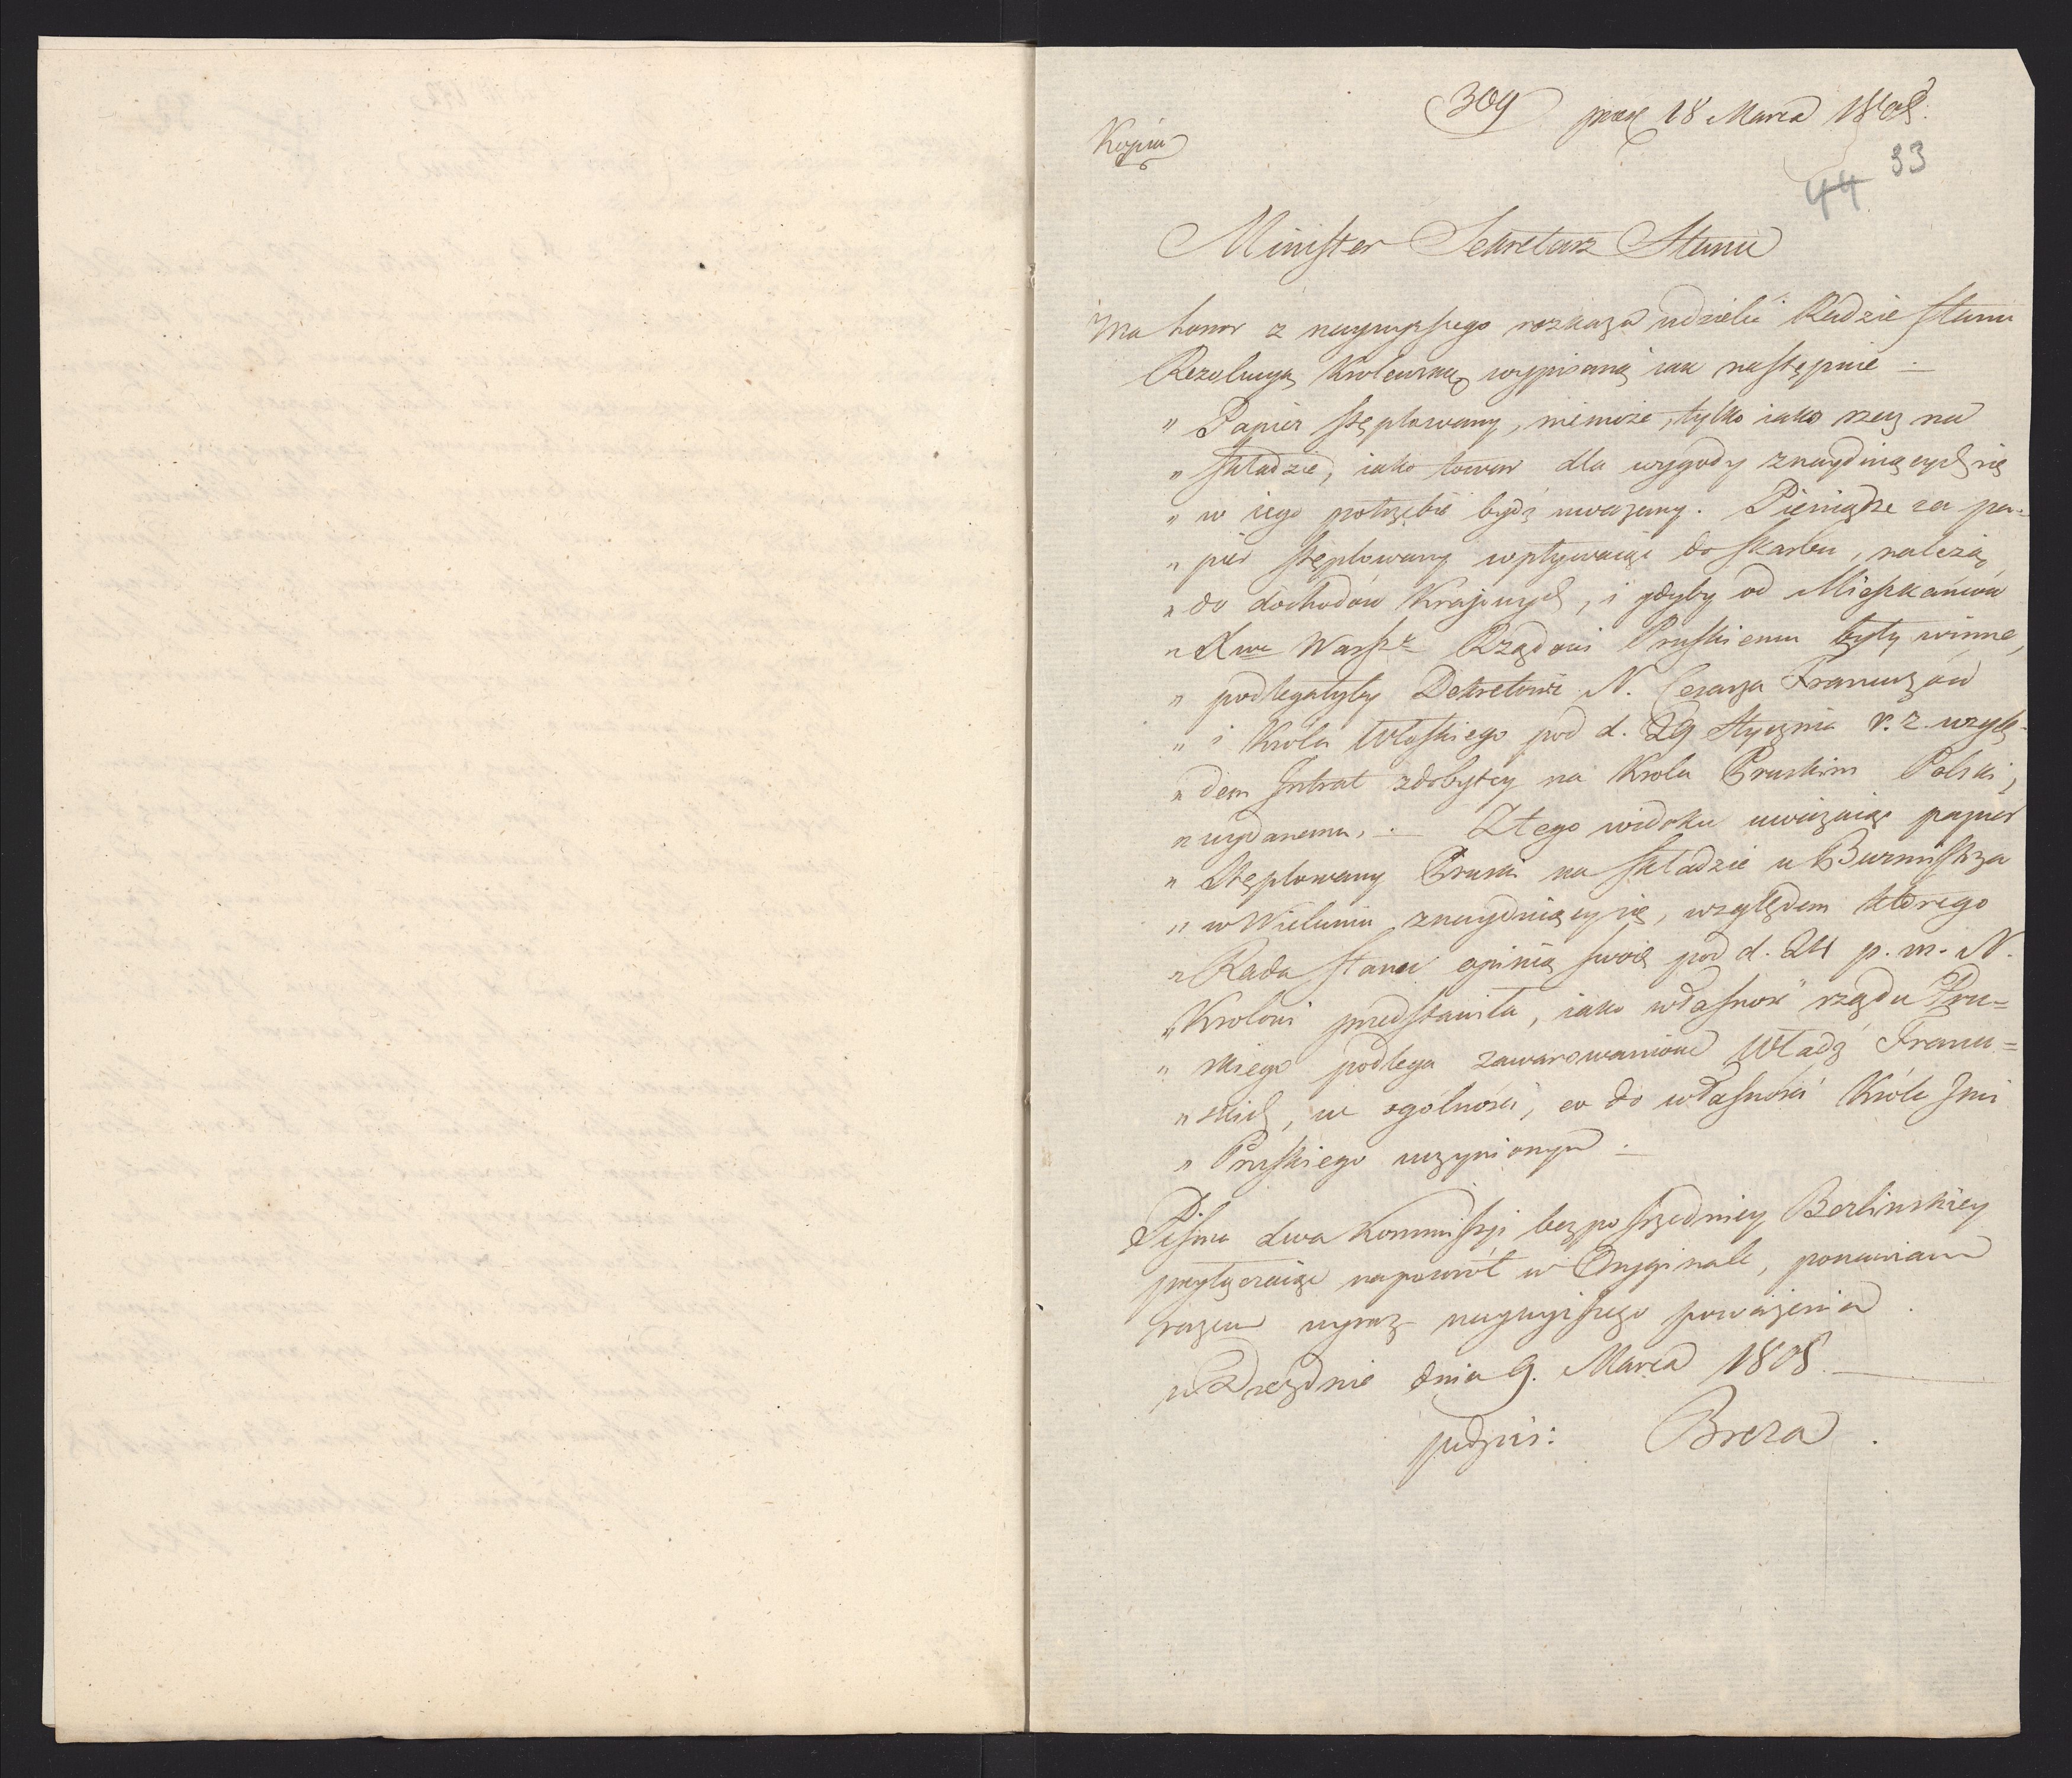 309 praes 18 Marca 1808.
Kopia
33
44
Minister Sekretarz Stanu
Ma honor z naywyższego rozkazu udzielić Radzie Stanu
Rezolucyą Krolewską wypisaną iak następnie :
" Papier stęplowany, niemoże, tylko iako rzecz na
" składzie, iako towar dla wygody znayduiących się
" w iego potrzebie bydź uważany. Pieniądze za pa-
" pier stęplowany wpływaiące do skarbu, należą
" do dochodów Krajowych, i gdyby od Mieszkańców
" Xwa Warszo Rządowi Pruskiemu były winne,
" podlegałyby Dekretowi N. Cesarza Francuzów
" i Króla Włoskiego pod d. 29 Stycznia r. z. wzglę-
" dem Intrat zdobytey na Krolu Pruskim Polski,
" wydanemu. — Z tego widoku uważaiąc papier
" Stęplowany Pruski na składzie u Burmistrza
" w Wieluniu znayduiący się, względem którego
" Rada Stanu opinią swoię pod d. 24 p. m. N.
" Krolowi przedstawiła, iako własność rządu Pru=
" skiego podlega zawarowaniom Władz Francu=
" skich, w ogólności, co do własności Króla Jmci
" Pruskiego uczynionym :
Pisma dwa Kommissyi bezpośredniey Berlinskiey
przyłączaiąc napowrót w Oryginale, ponawiam
razem wyraz naywyższego poważenia .
w Dreznie dnia 9. Marca 1808. —
podpis: Breza .